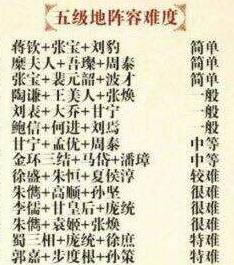 五级地阵容难度
蒋钦+张宝+刘豹 简单
糜夫人+吾璨+周泰 简单
张宝+裴元韶+波才 简单
陶谦+王美人+张焕 一般
刘表+大乔+甘宁 一般
鲍信+何进+刘焉 一般
甘宁+孟优+周泰 中等
金环三结+马岱+潘璋 中等
徐盛+朱恒+夏侯淳 较难
朱儁+高顺+孙坚 很难
李儒+甘皇后+庞统 很难
朱儁+袁姬+张焕 很难
蜀三相+庞统+徐庶 特难
郭嘉+步度根+孙策 特难